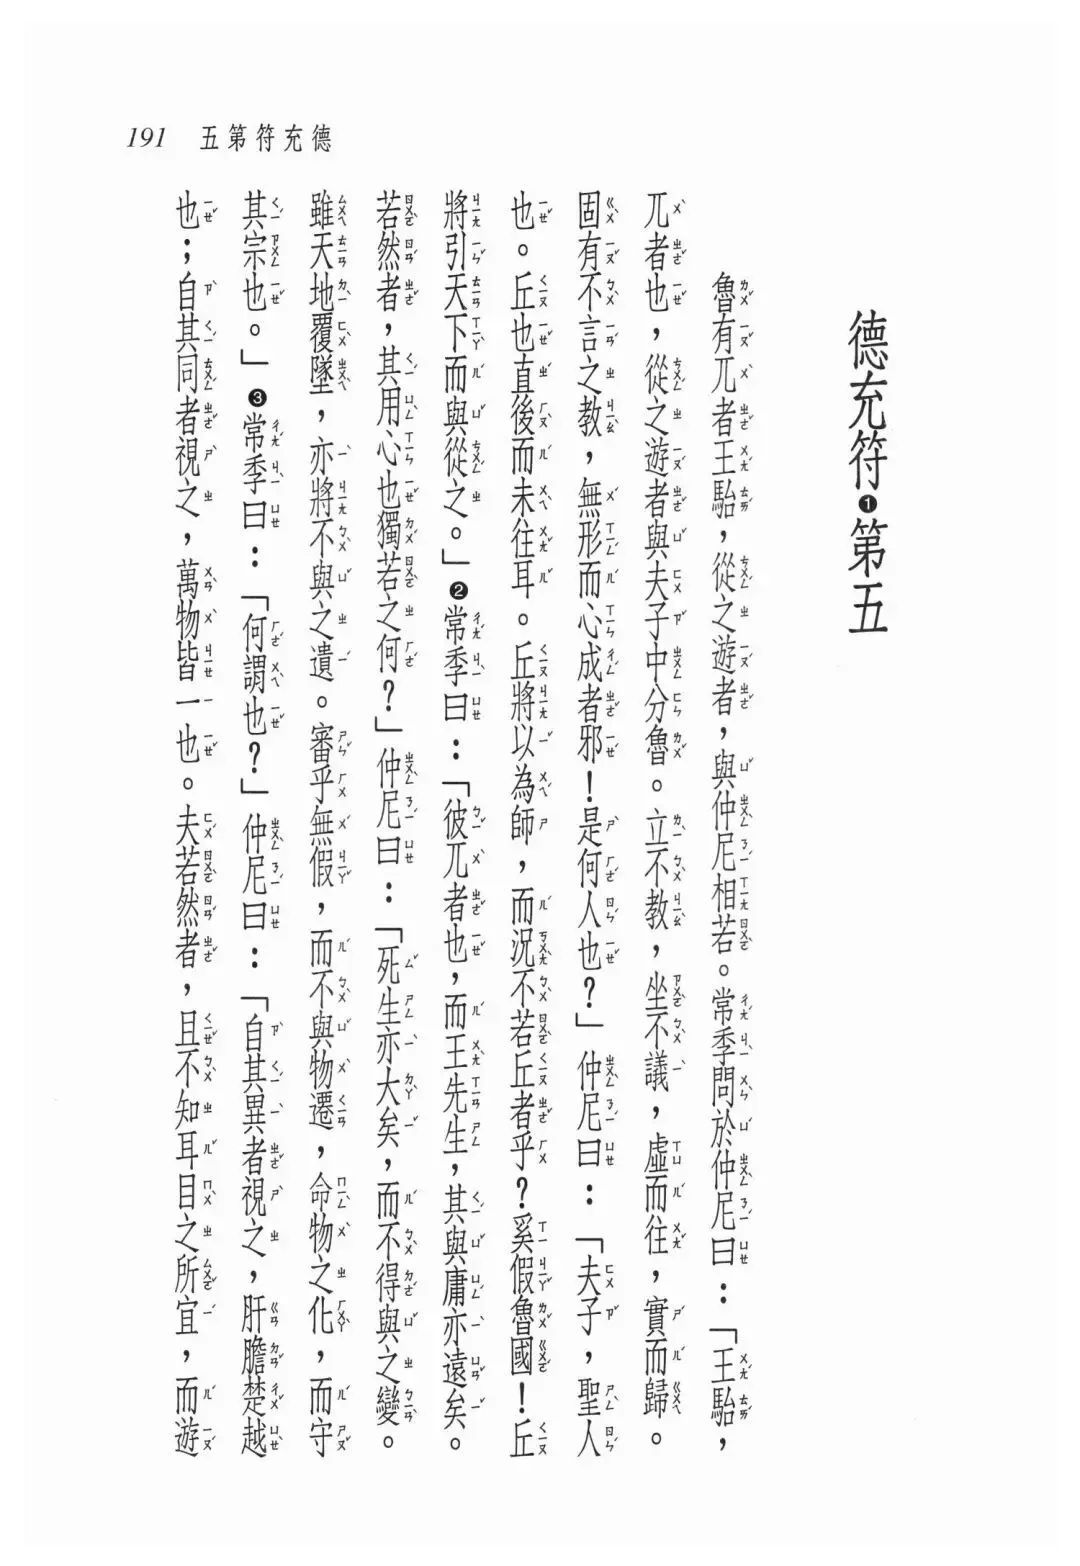 德充符第五 191
德充符❶第五
魯有兀者王駘，從之遊者，與仲尼相若。常季問於仲尼曰：「王駘，
兀者也，從之遊者與夫子中分魯。立不教，坐不議，虛而往，實而歸。
固有不言之教，無形而心成者邪！是何人也？」仲尼曰：「夫子，聖人
也。丘也直後而未往耳。丘將以為師，而況不若丘者乎？奚假魯國！丘
將引天下而與從之。」❷常季曰：「彼兀者也，而王先生，其與庸亦遠矣。
若然者，其用心也獨若之何？」仲尼曰：「死生亦大矣，而不得與之變。
雖天地覆墜，亦將不與之遺。審乎無假，而不與物遷，命物之化，而守
其宗也。」❸常季曰：「何謂也？」仲尼曰：「自其異者視之，肝膽楚越
也；自其同者視之，萬物皆一也。夫若然者，且不知耳目之所宜，而遊